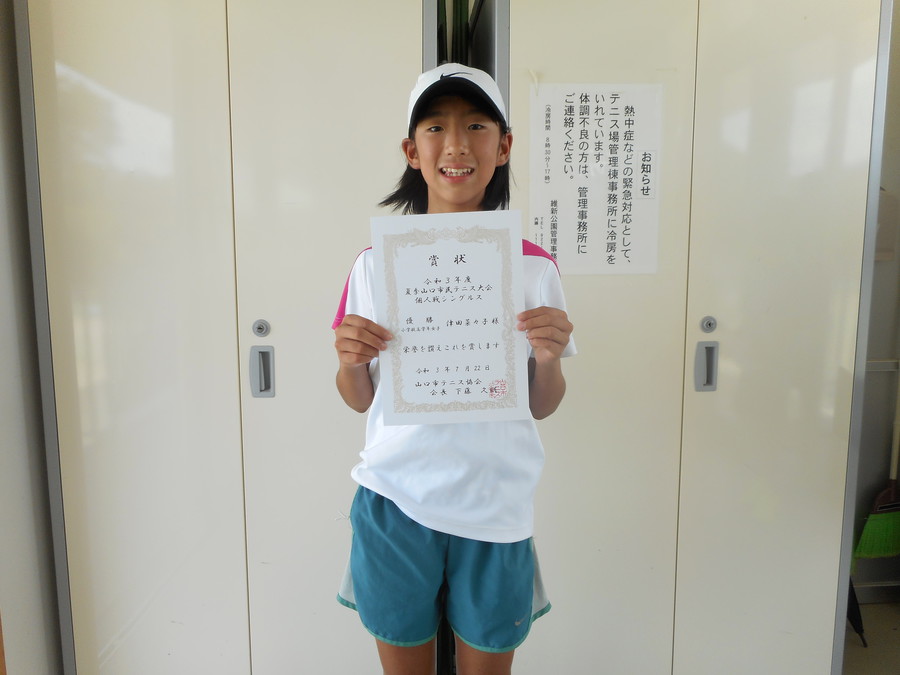 賞状
令和3年度
夏季山口市民テニス大会
個人戦シングルス
優勝
小学校高学年女子
津田菜々子様
栄誉を讃えこれを賞します
令和3年7月22日
山口市テニス協会
会長 下藤
お知らせ
熱中症などの緊急対応として、
テニス場管理棟事務所に冷房を
いれています。
体調不良の方は、管理事務所に
ご連絡ください。
（冷房時間 8時30分～17時）
維新公園管理事務